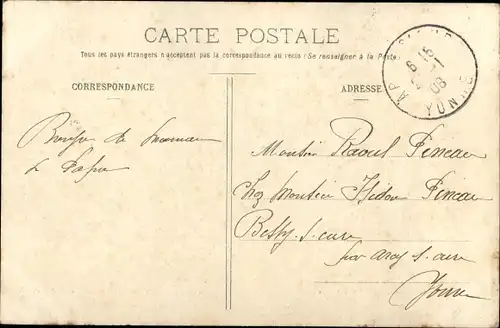 CARTE POSTALE
Tous les pays étrangers n'acceptent pas la correspondance au recto (Se renseigner à la Poste)
CORRESPONDANCE
ADRESSE
YONNE
08
de
Monsieur Raoul Pineau
Chez Monsieur Isidore Pineau
Bessy-s-cure
par arcy s. cure
Yonne